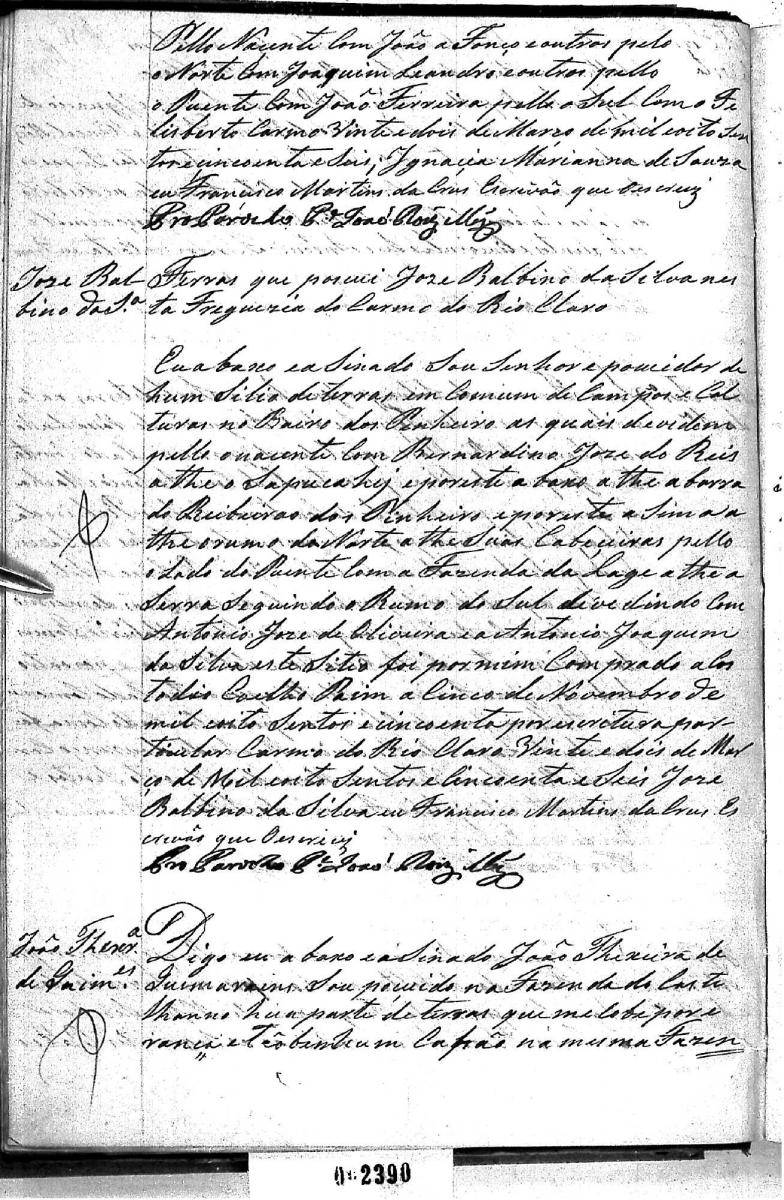 Pello Nacente Com João a Fonço e outros pelo
o Norte Com Joaquim Leandro e outros pello
o Puente Com João Ferreira pello o Sul Com o Fe
lisberto Carmo Vinte e dois de Marzo de mil e oito Sen
tos e cincoenta e Seis, Ignácia Marianna de Souza
eu Francisco Martins da Crus Escrivão que Oescrevj
Pro Parocho Pe João Roiz
Joze Bal
bino da S.a
Terras que posui Joze Balbino da Silva nes
ta Freguezia do Carmo do Rio Claro
Eu abaxo e a Sinado Sou Senhor e poucidor de
hum Sitio de terras em Comum de Campos e Col
turas no Bairo dos Pinheiro as quais devidem
pello o nacente Com Bernardino Joze do Reis
a the o Sapucahij e por este a baxo a the a barra
do Ribeirao dos Pinheiro e por este a Sima a
the o rumo do Norte a the Suas Cabeçeiras pello
o Lado do Puente Com a Fazenda da Lage a the a
Serra Seguindo o Rumo do Sul devedindo Com
Antonio Joze de Oliveira e a Antonio Joaquim
da Silva este Sitio foi por mim Comprado a Cos
todio Coelho Paim a Cinco de Novembro de
mil e oito Sentos e cincoenta por escritura par-
ticular Carmo do Rio Claro Vinte e dois de Mar
ço de Mil e oito Sentos e Cincoenta e Seis Joze
Balbino da Silva eu Francisco Martins da Crus Es
crivão que Oescrevj
Pro Parocho Pe João Roiz
João Thexr.a
de Guim.es
Digo eu a baxo e a Sinado João Thexeira de
Guimaraens Sou poucido na Fazenda do Caste
lhanno hua parte de terras que me Cobe por e
rança e Tãobem hum Capão na mesma Fazen
2390